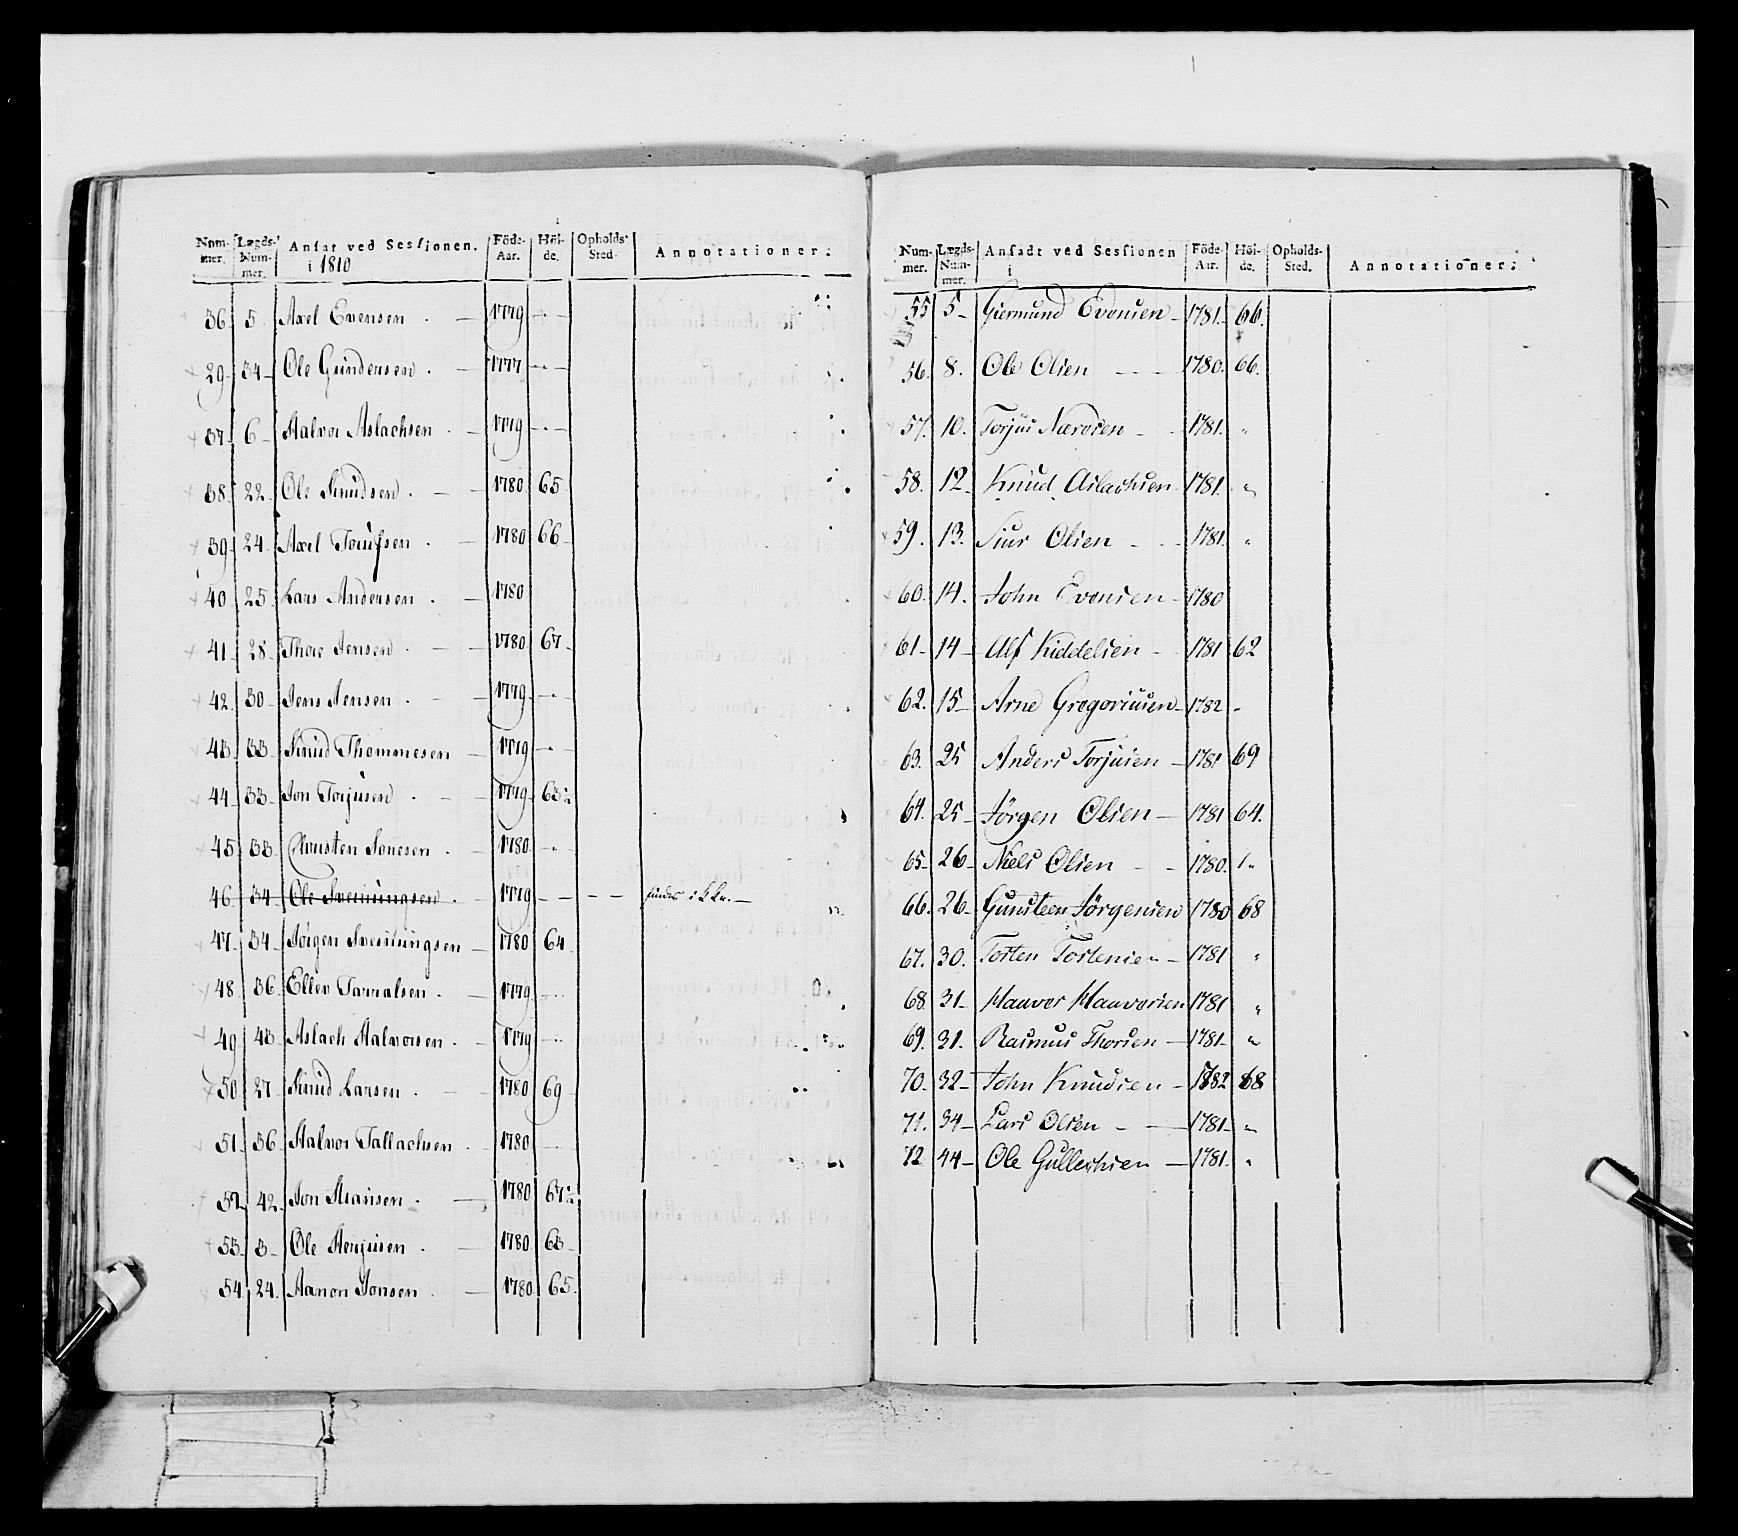 Num- Lægds- Ansat ved Sessionen. Föde- Höi- Opholds- Annotationer.
mer. Num- i 1810 Aar. de. Sted.
mer.
36. 5. Axel Evensen . — 1779 — . —
29. 34 — Ole Gundersen . — 1777 — . —
37. 6 — Halvor Aslachsen . — 1779 — . —
38. 22. Ole Knudsen . — 1780 65
39. 24. Axel — 1780 66 —
40. 25. Lars Andersen . — 1780
41. 28. Thore Jensen . — 1780 67 —
42. 30 — Jens Jensen . — 1779 — . —
43. 33. Knud Thommesen — 1779 — . —
44. 33 — Jon Torjusen . — 1779 63½
45. 33. Christen Jonesen . — 1780 — . —
46. 34 — Ole Sveinungsen . — 1779 — — — — findes ikke. —
47. 34 — Jörgen Sveinungsen — 1780 64
48. 36. Ellev Tarralsen . — 1779 — . .
49. 43. Aslach Halvorsen . — 1779 — . .
50. 27 — Knud Larsen . — 1780 69 —
51. 36. Halvor Tallachsen . 1780 — —
52. 42. Jon — 1780 67½
53. 3 — Ole — 1780 63 —
54. 24. Aanon Jonsen . — 1780 65.
Num- Lægds- Ansadt ved Sessionen Föde- Höi- Opholds- Annotationer.
mer. Num- i Aar. de. Sted.
mer.
55 5 — Giermund Evensen — 1781. 66.
56. 8. Ole Olsen — — 1780. 66.
57. 10. Torjus Nærvesen — 1781. "
58. 12. Knud Aslachsen 1781. "
59. 13. Siur Olsen — — 1781. "
60. 14. John Evensen — 1780
61 — 14 — Alf Kiddelsen — 1781 62
62. 15 — Arne Gregoriusen — 1782 "
63. 25 Anders Torjusen — 1781 69
64. 25 — Jörgen Olsen — 1781 64.
65 — 26 — Niels Olsen — — 1780. "
66. 26 — Gunsteen Jörgensen 1780 68
67. 30. Tosten Tostensen — 1781 "
68. 31 — Haavor Haavorsen 1781 "
69. 31. Rasmus Thorsen — 1781 — "
70. 32 — John Knudsen — 1782 68
71. 34 — Lars Olsen — — 1781 — "
72 44 — Ole — 1781. "